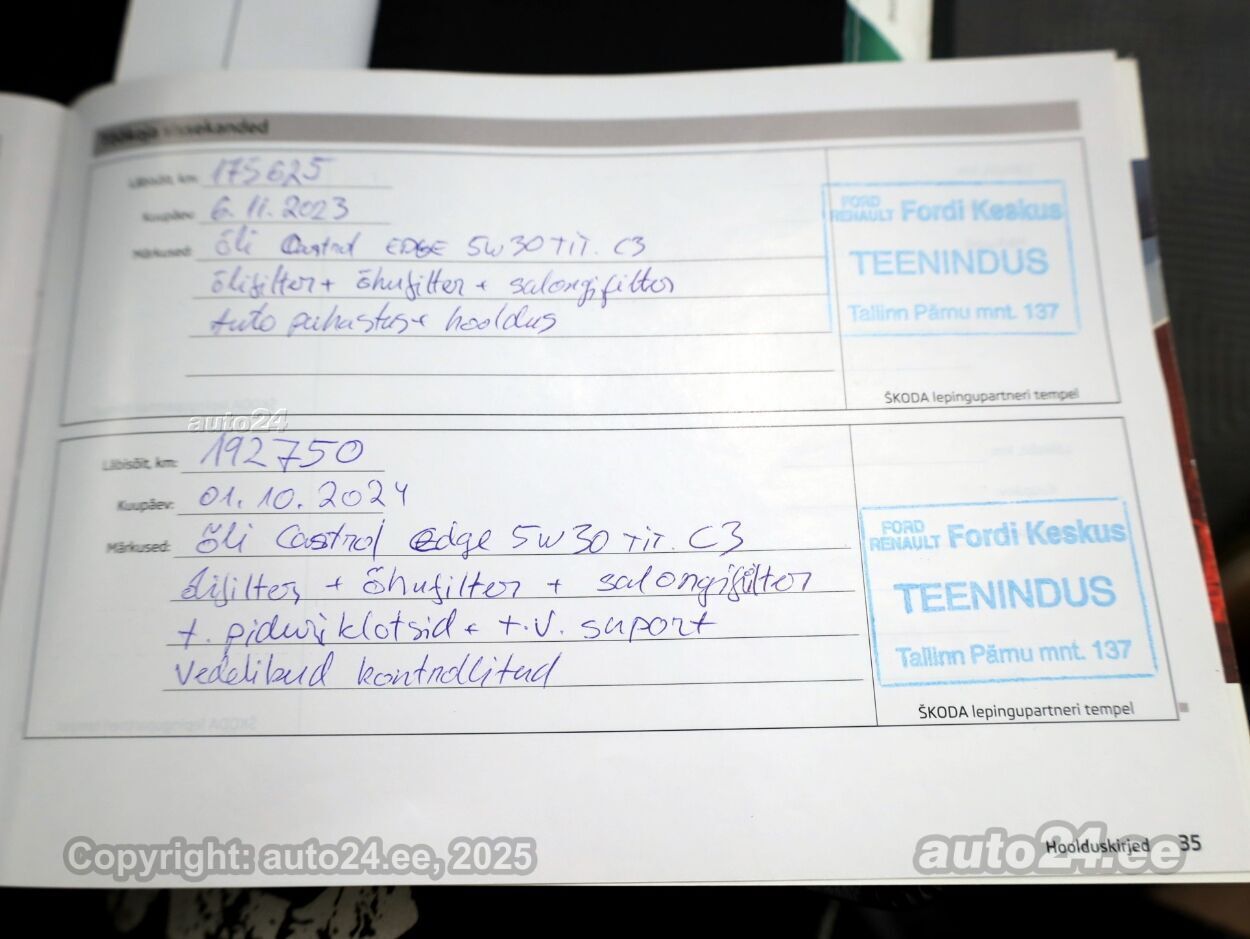 Töökoja sissekanded
Läbisõit, km: 175625
Kuupäev: 6.11.2023
Märkused: Õli Castrol EDGE 5W30 TIT. C3
õlifilter + õhufilter + salongifilter
Auto puhastus + hooldus
FORD
RENAULT Fordi Keskus
TEENINDUS
Tallinn Pärnu mnt. 137
ŠKODA lepingupartneri tempel
auto24
Läbisõit, km: 192750
Kuupäev: 01.10.2024
Märkused: Õli Castrol Edge 5W30 TIT. C3
õlifilter + õhufilter + salongifilter
t. piduri klotsid + t.v. suport
Vedelikud kontrollitud
FORD
RENAULT Fordi Keskus
TEENINDUS
Tallinn Pärnu mnt. 137
ŠKODA lepingupartneri tempel
Hoolduskirjed 35
Copyright: auto24.ee, 2025
auto24.ee